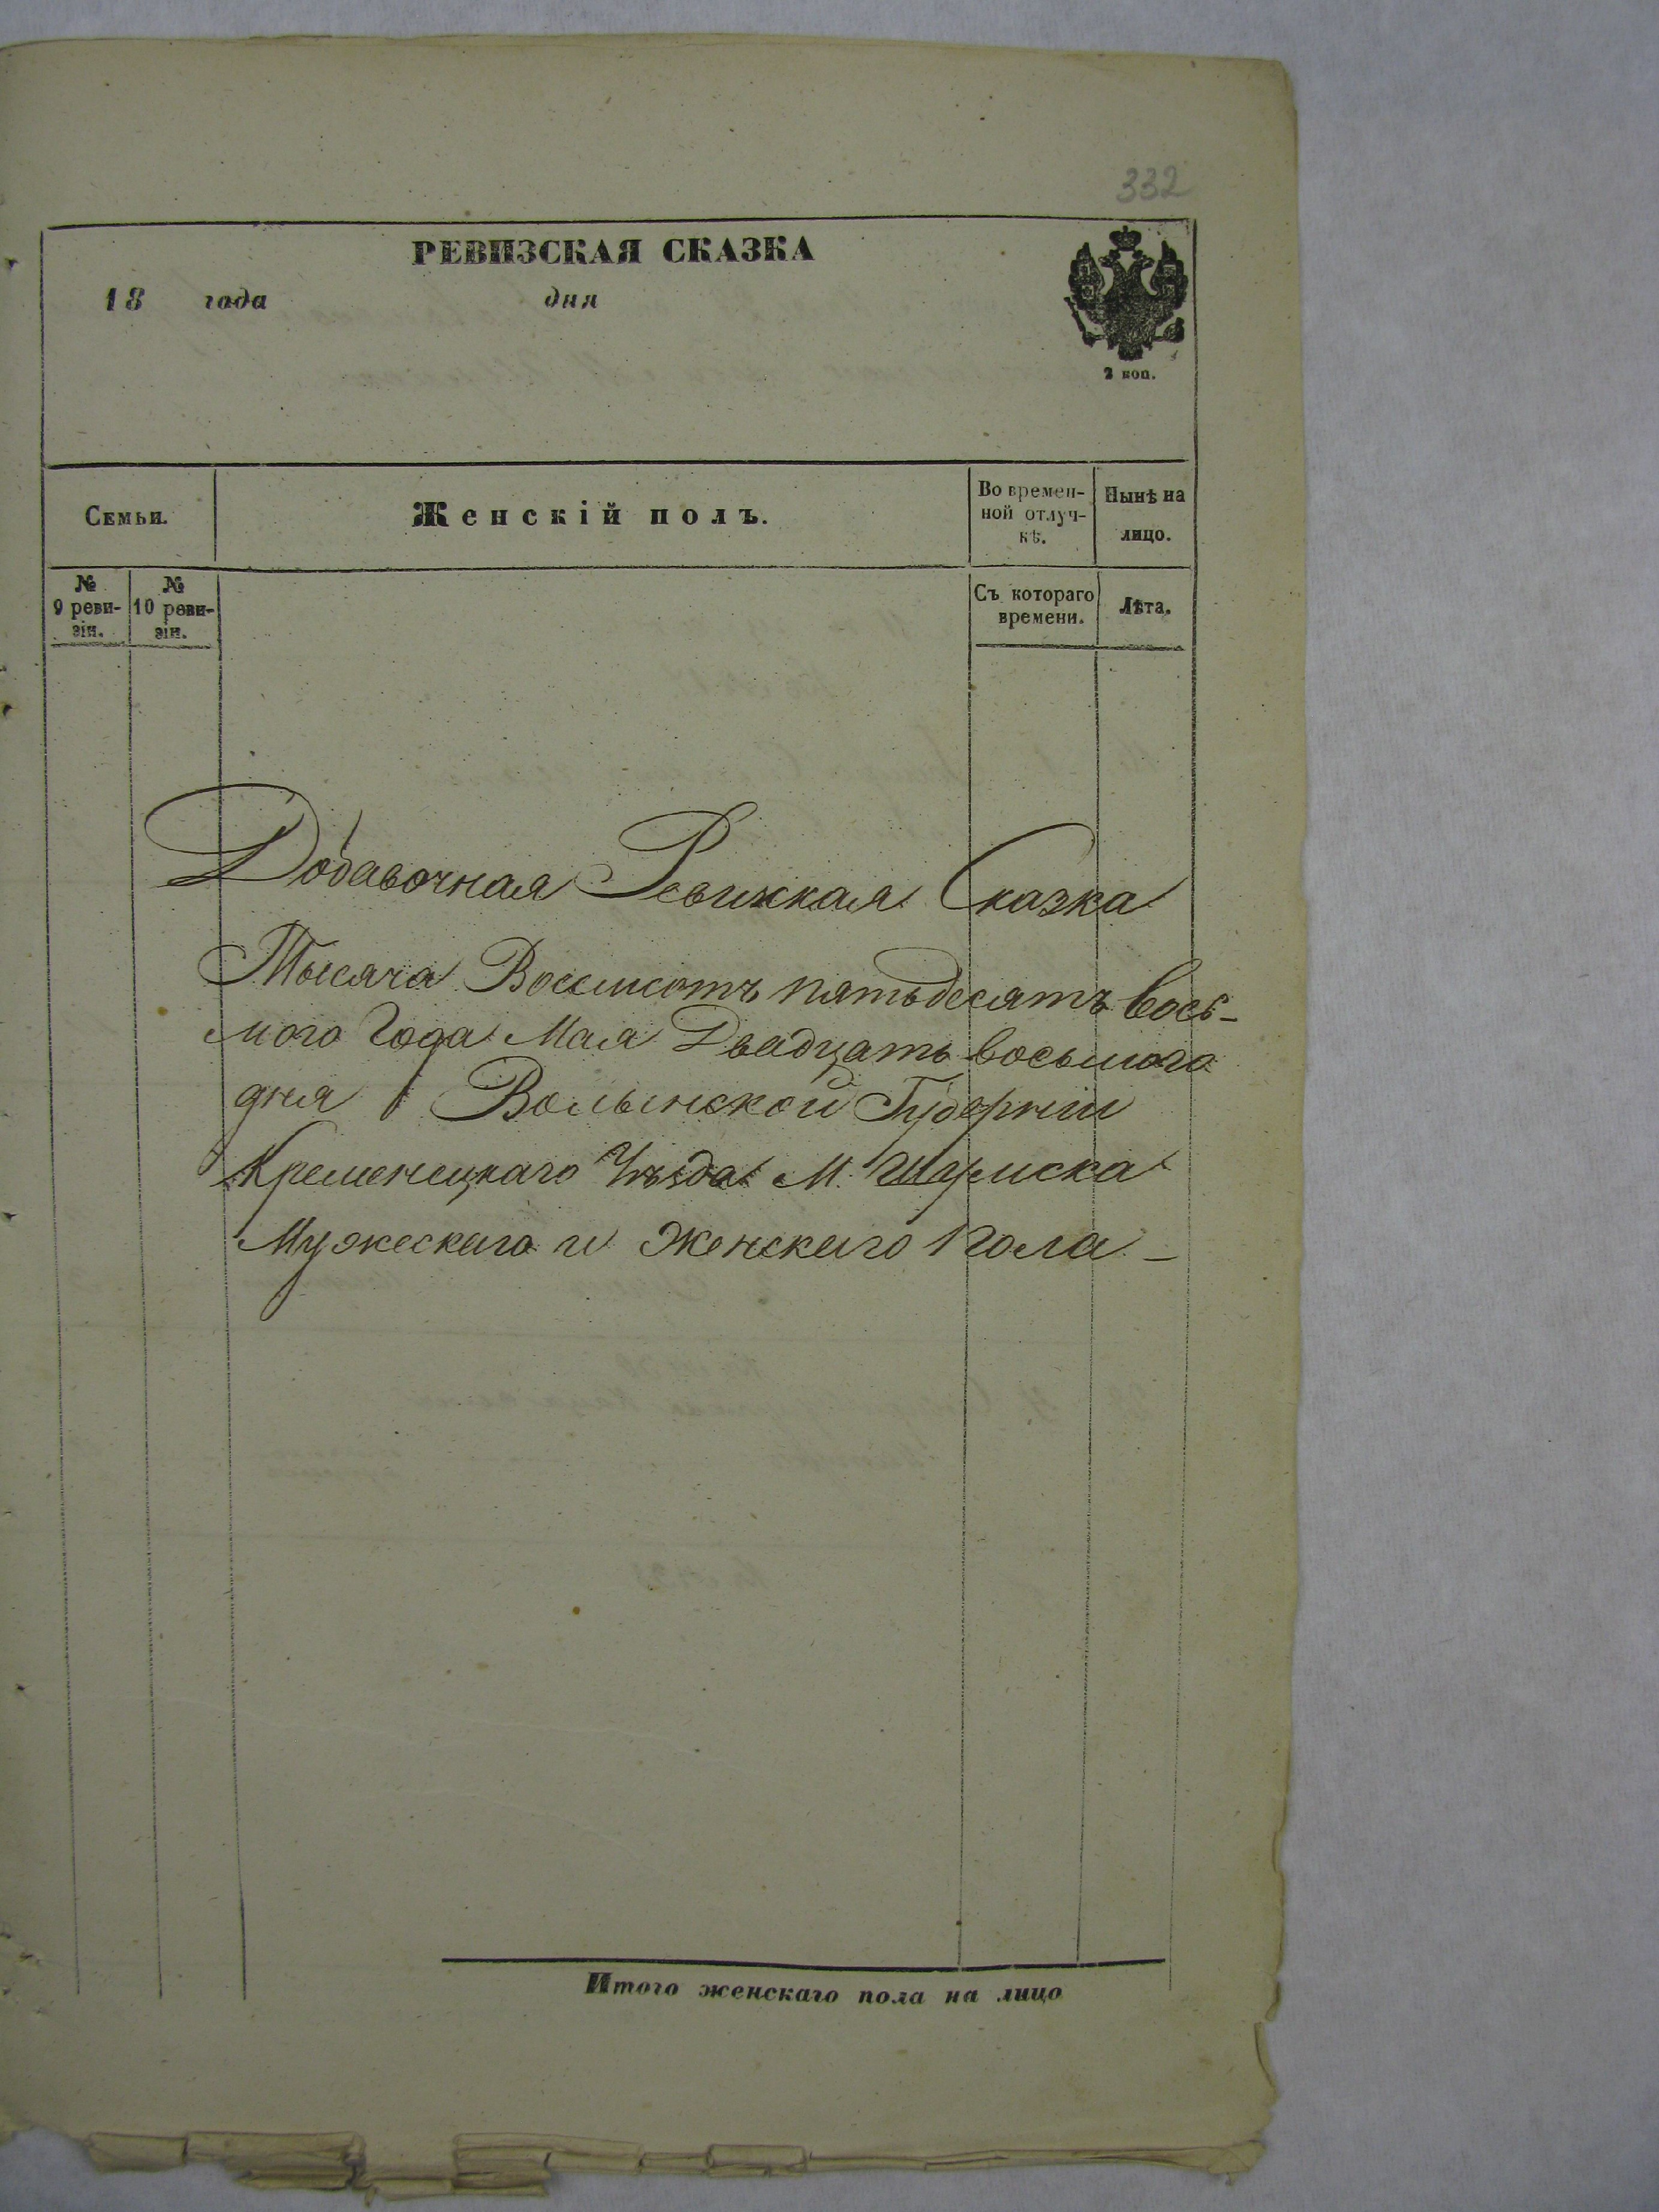 332
РЕВИЗСКАЯ СКАЗКА
18 года дня
2 коп.
Семьи.
Женскій полъ.
Во времен-
ной отлуч-
кѣ.
Нынѣ на
лицо.
№
9 реви-
зіи.
№
10 реви-
зіи.
Съ котораго
времени.
Лѣта.
Добавочная Ревижкая Сказка
Тысяча Восемсотъ пятьдесятъ вось-
мого Года Мая Двадцать восьмого
дня Волынской Губерніи
Кременецкаго Уѣзда М. Шумска
Мужескаго и Женскаго пола –
Итого женскаго пола на лицо